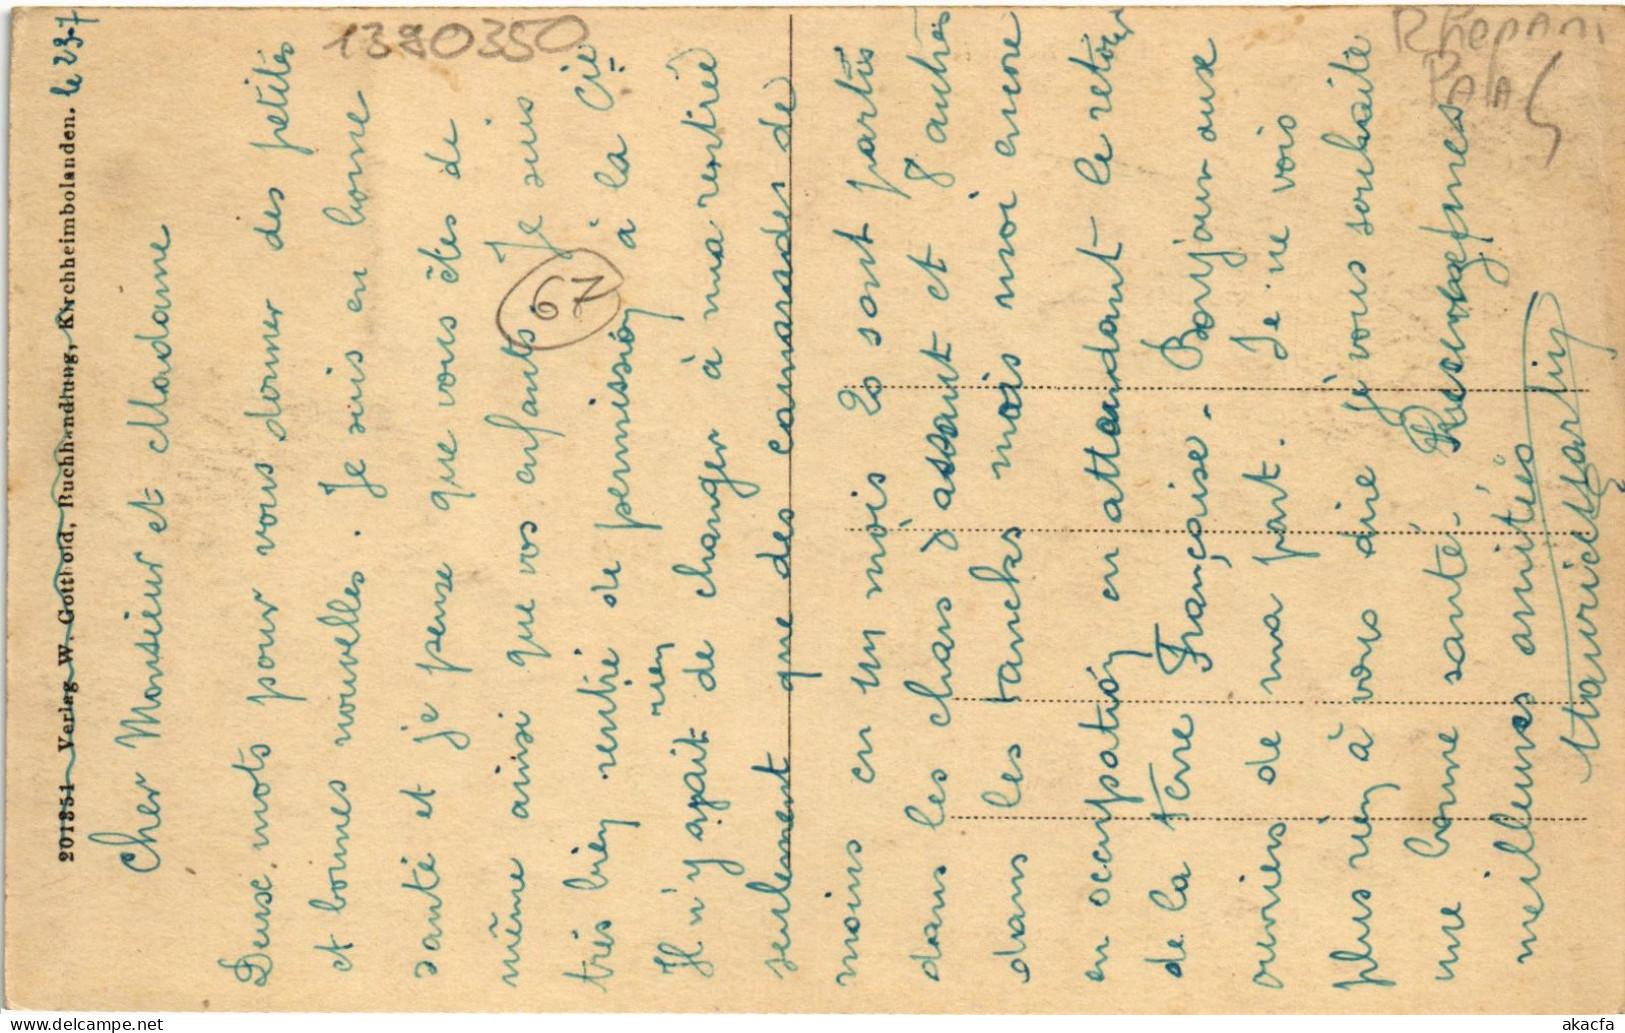 201351 Verlag W. Gotthold, Buchhandlung, Kirchheimbolanden. le 23-7
Cher Monsieur et Madame
Deux mots pour vous donner des petites
et bonnes nouvelles. Je suis en bonne
santé et je pense que vous êtes de
même ainsi que vos enfants. Je suis
très bien rentré de permission à la Cie
rien
Il n'y avait de changer à ma rentrée
seulement que des camarades de
moins en un mois 20 sont partis
dans les chars d'assaut et 8 autres
dans les tancks mois moi encore
en occupation en attendant le retour
de la terre Française. Bonjour aux
ouvriers de ma part. Je ne vois
plus rien à vous dire je vous souhaite
une bonne santé. Recevez mes
meilleures amitiés
Maurice Martin
1390350
67
Rhenani
Pala
akacfa